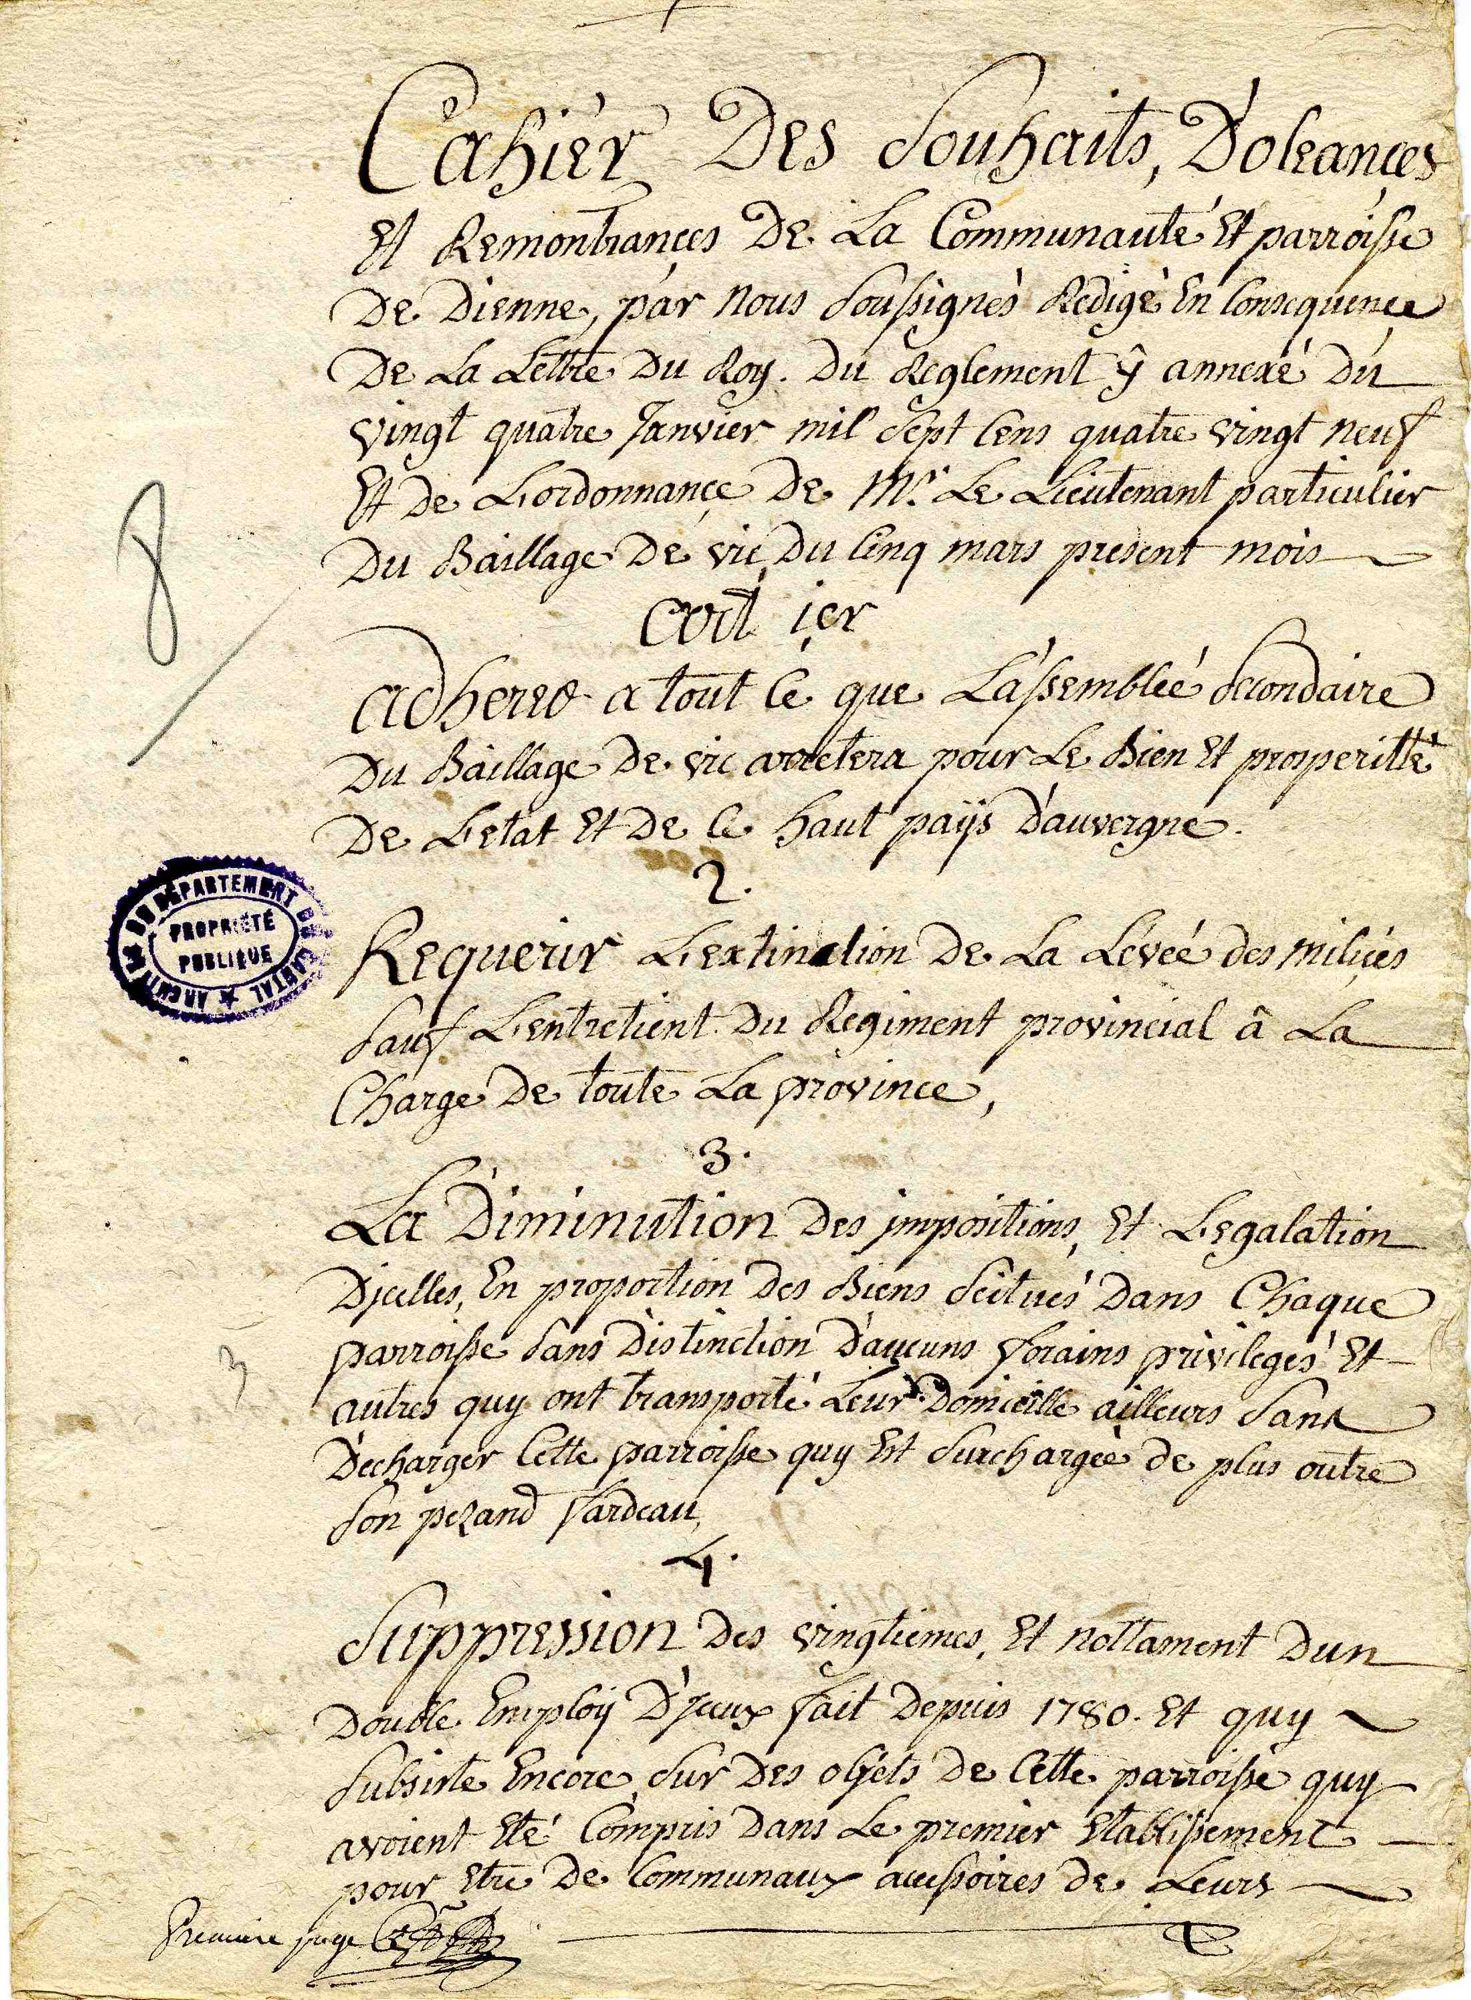 Cahier Des Souhaits, Doleances
Et Remontrances De La Communauté Et parroisse
De Dienne, par nous Soussignés Redigé En Consequence
De La Lettre Du Roy. Du Reglement ÿ annexé Du
vingt quatre Janvier mil Sept Cens quatre vingt neuf
Et de L'ordonnance De Mr. Le Lieutenant particulier
Du Baillage De vic, Du Cinq mars present mois
art ier
adherer a tout Ce que L'assemblée Secondaire
Du Baillage De vic arretera pour Le Bien Et prosperitté
De L'etat Et De Ce haut païis D'auvergne.
2.
Requerir L'extinction De La Levée des milices
Sauf L'entretient Du Regiment provincial â La
Charge De toute La province,
3.
La Diminution Des jmpositions, Et L'egalation
Djcelles, En proportion Des Biens Scitués Dans Chaque
parroisse Sans Distinction D'aucuns forains privilegés Et
autres quy ont transporté Leur Domicille ailleurs Sans
Decharger Cette parroisse quy Est Surchargée de plus outre
Son pezand fardeau,
4.
Suppression Des vingtiemes, Et nottament Dun
Double Employ D'jceux fait Depuis 1780. Et quy
Subsiste Encore Sur Des objets De Cette parroisse quy
avoient Eté Compris Dans Le premier Etablissement
pour Etre De Communaux accessoires de Leurs
Premiere page
8
3
ARCHIVES DU DÉPARTEMENT DU CANTAL
PROPRIÉTÉ
PUBLIQUE